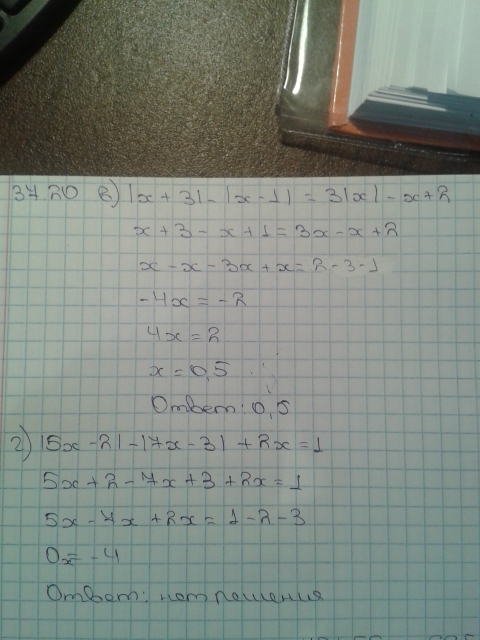 37.20 в) |x + 3| - |x - 1| = 3|x| - x + 2
x + 3 - x + 1 = 3x - x + 2
x - x - 3x + x = 2 - 3 - 1
-4x = -2
4x = 2
x = 0,5
Ответ: 0,5
г) |5x - 2| - |7x - 3| + 2x = 1
5x + 2 - 7x + 3 + 2x = 1
5x - 7x + 2x = 1 - 2 - 3
0x = -4
Ответ: нет решения